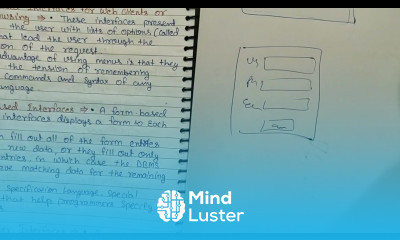 Interfaces for Web Clients or
Browsing ⇒ • These interfaces present
the user with lists of options (called
that lead the user through the
ion of the request.
advantage of using menus is that they
the tension of remembering
commands and syntax of any
language.
Based Interfaces ⇒ • A form-based
interfaces displays a form to each
fill out all of the form entries
new data, or they fill out only
entries, in which case the DBMS
matching data for the remaining
Specification language, special
that help programmers specify
Mind
Luster